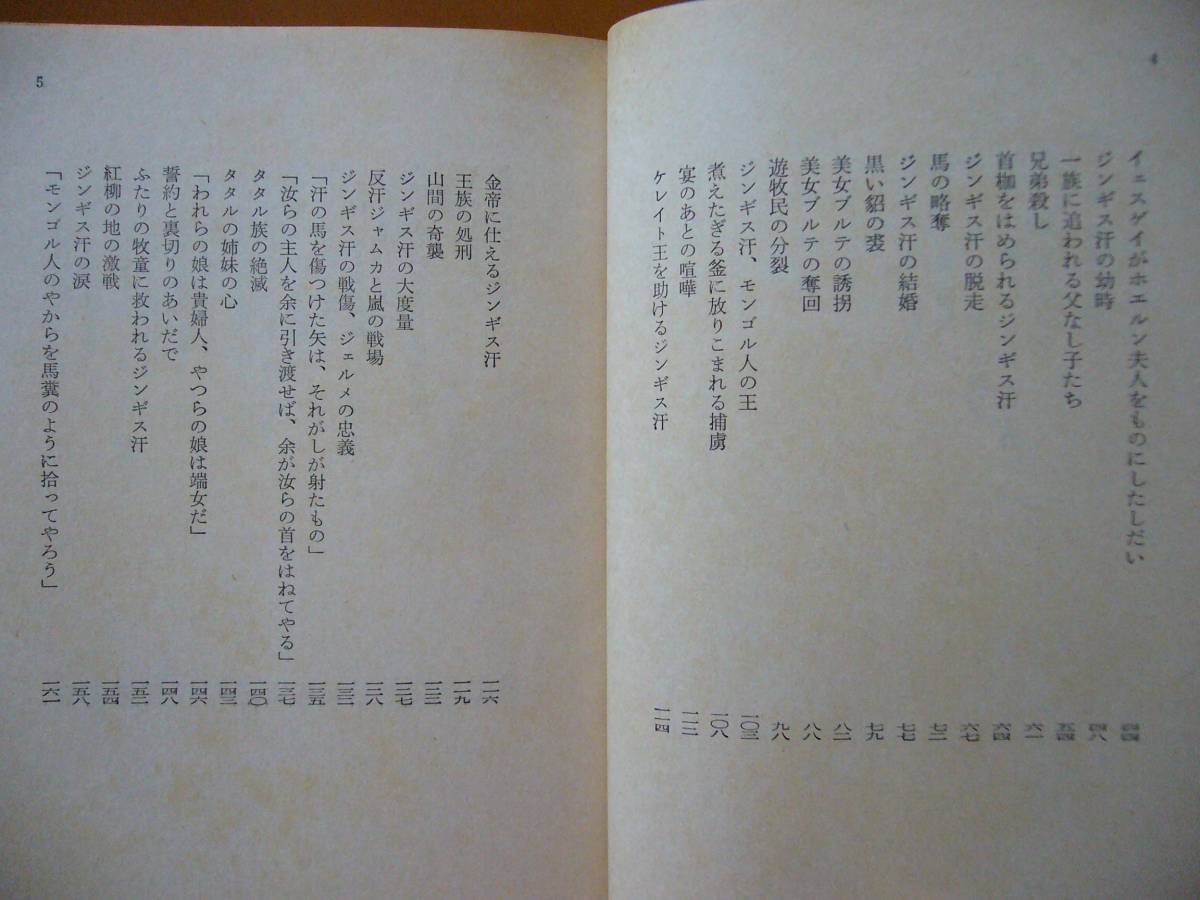 4
イェスゲイがホエルン夫人をものにしたしだい 四四
ジンギス汗の幼時 四八
一族に追われる父なし子たち 五四
兄弟殺し 六一
首枷をはめられるジンギス汗 六四
ジンギス汗の脱走 六七
馬の略奪 七二
ジンギス汗の結婚 七七
黒い貂の裘 七九
美女ブルテの誘拐 八二
美女ブルテの奪回 八八
遊牧民の分裂 九八
ジンギス汗、モンゴル人の王 一〇三
煮えたぎる釜に放りこまれる捕虜 一〇八
宴のあとの喧嘩 一一二
ケレイト王を助けるジンギス汗 一一四
5
金帝に仕えるジンギス汗 一一六
王族の処刑 一一九
山間の奇襲 一二二
ジンギス汗の大度量 一二七
反汗ジャムカと嵐の戦場 一二八
ジンギス汗の戦傷、ジェルメの忠義 一三二
「汗の馬を傷つけた矢は、それがしが射たもの」 一三五
「汝らの主人を余に引き渡せば、余が汝らの首をはねてやる」 一三七
タタル族の絶滅 一四〇
タタルの姉妹の心 一四三
「われらの娘は貴婦人、やつらの娘は端女だ」 一四六
誓約と裏切りのあいだで 一四八
ふたりの牧童に救われるジンギス汗 一五二
紅柳の地の激戦 一五四
ジンギス汗の涙 一五八
「モンゴル人のやからを馬糞のように拾ってやろう」 一六一